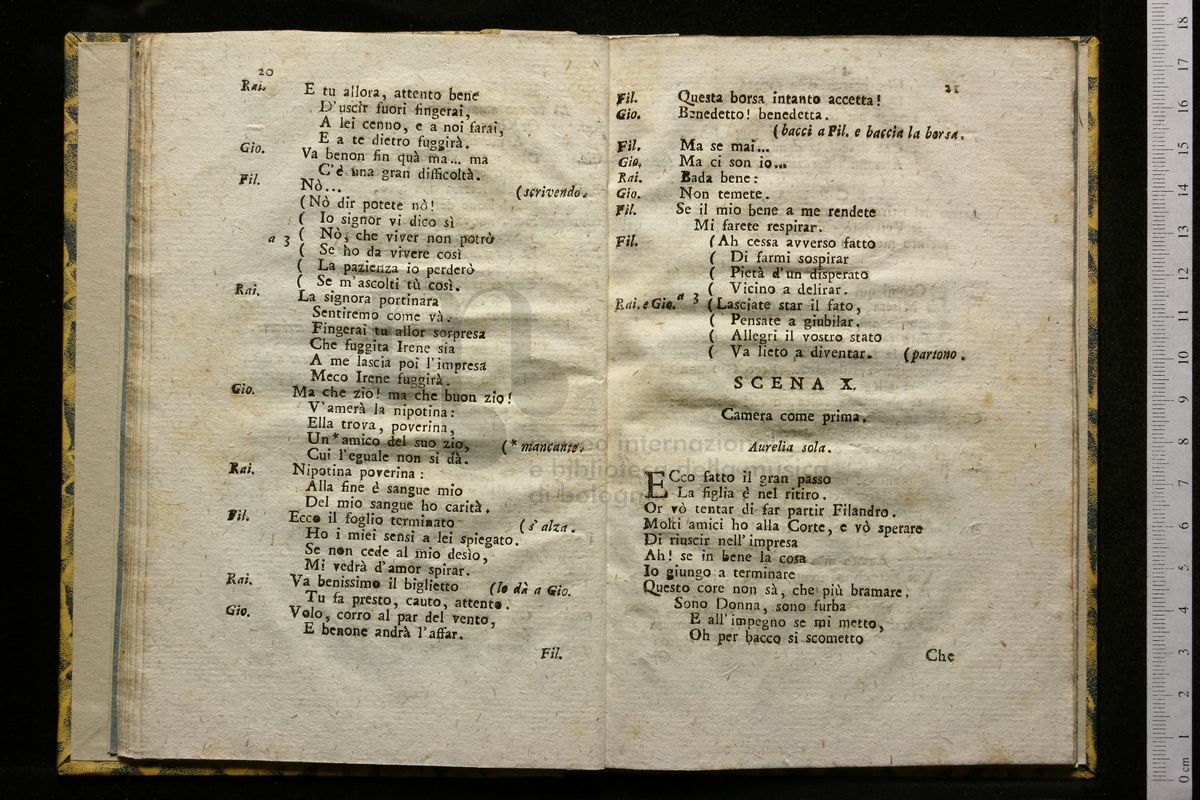 20
Rai. E tu allora, attento bene
D'uscir fuori fingerai,
A lei cenno, e a noi farai,
E a te dietro fuggirà.
Gio. Va benon fin quà ma... ma
C'è una gran difficoltà.
Fil. Nò... (scrivendo.
(Nò dir potete nò!
( Io signor vi dico sì
a 3 ( Nò, che viver non potrò
( Se ho da vivere così
( La pazienza io perderò
( Se m'ascolti tù così.
Rai. La signora portinara
Sentiremo come và.
Fingerai tu allor sorpresa
Che fuggita Irene sia
A me lascia poi l'impresa
Meco Irene fuggirà.
Gio. Ma che zio! ma che buon zio!
V'amerà la nipotina:
Ella trova, poverina,
Un*amico del suo zio, (* mancante.
Cui l'eguale non si dà.
Rai. Nipotina poverina:
Alla fine è sangue mio
Del mio sangue ho carità.
Fil. Ecco il foglio terminato (s'alza.
Ho i miei sensi a lei spiegato.
Se non cede al mio desìo,
Mi vedrà d'amor spirar.
Rai. Va benissimo il biglietto (lo dà a Gio.
Tu fa presto, cauto, attento.
Gio. Volo, corro al par del vento,
E benone andrà l'affar.
Fil.
21
Fil. Questa borsa intanto accetta!
Gio. Benedetto! benedetta.
(bacci a Fil. e baccia la borsa.
Fil. Ma se mai...
Gio. Ma ci son io...
Rai. Bada bene:
Gio. Non temete.
Fil. Se il mio bene a me rendete
Mi farete respirar.
Fil. (Ah cessa avverso fatto
( Di farmi sospirar
( Pietà d'un disperato
( Vicino a delirar.
Rai. e Gio. a 3 (Lasciate star il fato,
( Pensate a giubilar.
( Allegri il vostro stato
( Va lieto a diventar. (partono.
SCENA X.
Camera come prima.
Aurelia sola.
ECco fatto il gran passo
La figlia è nel ritiro.
Or vò tentar di far partir Filandro.
Molti amici ho alla Corte, e vò sperare
Di riuscir nell'impresa
Ah! se in bene la cosa
Io giungo a terminare
Questo core non sà, che più bramare.
Sono Donna, sono furba
E all'impegno se mi metto,
Oh per bacco si scometto
Che